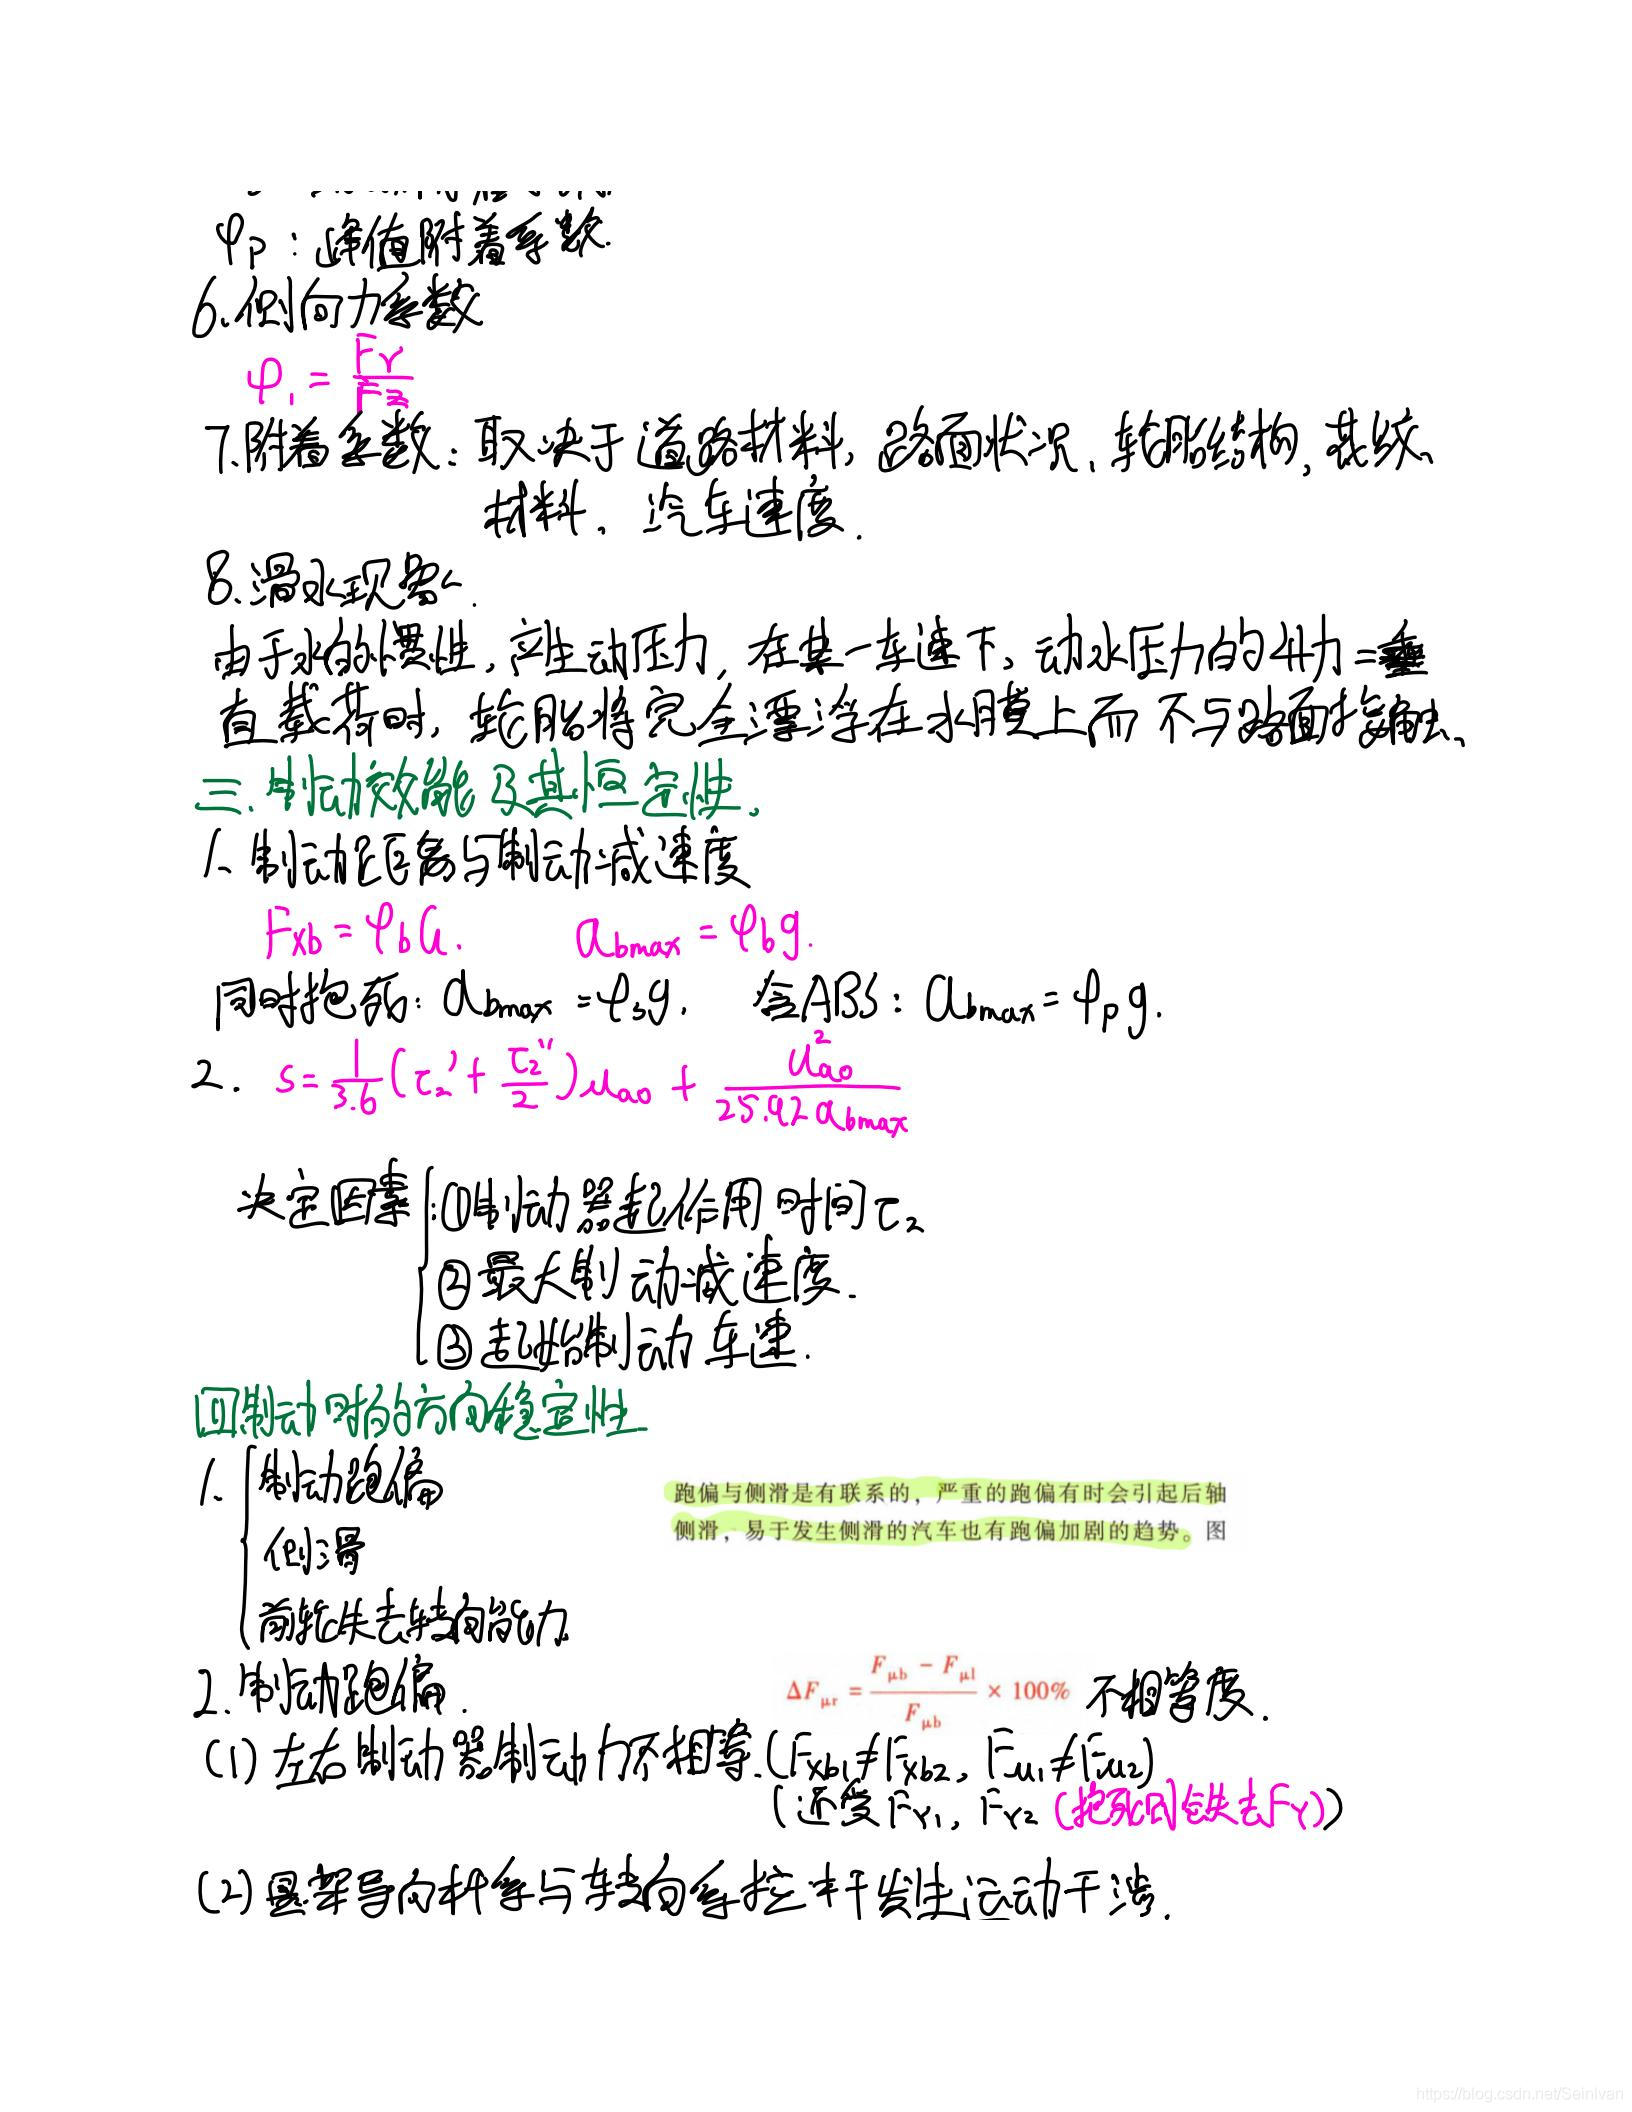 φp：峰值附着系数.
6.侧向力系数
φ₁ = FY/FZ
7.附着系数：取决于道路材料，路面状况、轮胎结构，花纹、
材料、汽车速度.
8.滑水现象.
由于水的惯性，产生动压力，在某一车速下，动水压力的升力=垂
直载荷时，轮胎将完全漂浮在水膜上而不与路面接触.
三.制动效能及其恒定性.
1.制动距离与制动减速度
Fxb = φbG. abmax = φbg.
同时抱死：abmax = φsg. 含ABS：abmax = φpg.
2. s = 1/3.6 (τ₂' + τ₂''/2) uao + u²ao/25.92abmax
决定因素：①制动器起作用时间τ₂
②最大制动减速度.
③起始制动车速.
四.制动时的方向稳定性
1. 制动跑偏
跑偏与侧滑是有联系的，严重的跑偏有时会引起后轴
侧滑，易于发生侧滑的汽车也有跑偏加剧的趋势。图
侧滑
前轮失去转向能力.
2.制动跑偏.
ΔFμr = (Fμb − Fμl)/Fμb × 100% 不相等度.
(1)左右制动器制动力不相等.(Fxb1≠Fxb2, Fμ1≠Fμ2)
(还受FY1, FY2(抱死时会失去FY))
(2)悬架导向杆系与转向系拉杆发生运动干涉.
https://blog.csdn.net/SeinIvan